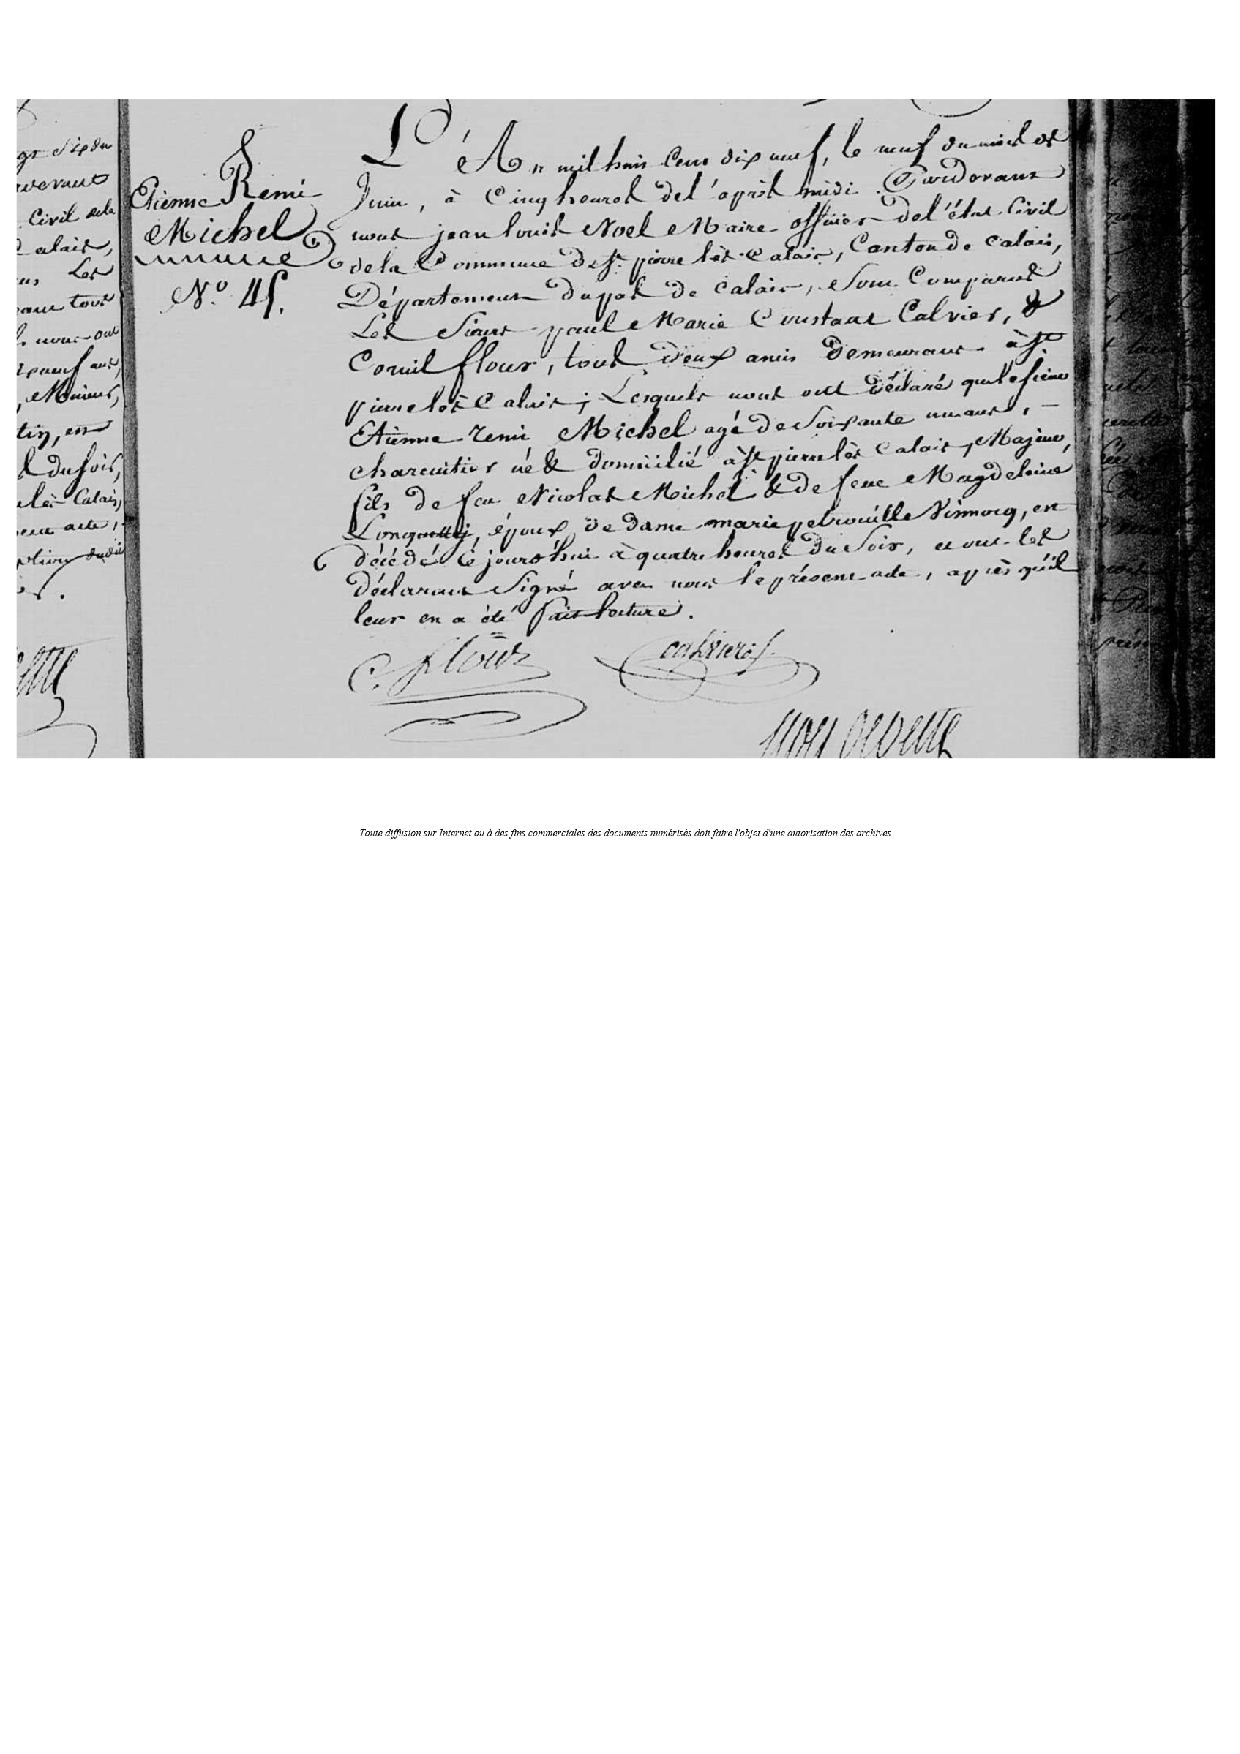 Etienne Remi
Michel
N.º 45.
L'An mil huit cent dix neuf, le neuf du mois de
Juin, à Cinq heures de l'après midi. Pardevant
nous jean louis Noel Maire officier de l'état Civil
de la Commune de St. pierre lès Calais, Canton de Calais,
Département du pas de Calais, Sont Comparus
Les Sieurs paul Marie Constant Calvier, &
Cornil flour, tous deux amis demeurant à St
pierre lès Calais; Lesquels nous ont déclaré que le sieur
Etienne remi Michel agé de Soixante
charcuitier né & domicilié à St pierre lès Calais, Majeur,
fils de feu Nicolas Michel & de feue Magdeleine
époux de dame marie petronille Vinnocq, en
décédé ce jourd'hui à quatre heures du Soir, et ont les
déclarants Signé avec nous le présent acte, après qu'il
leur en a été fait lecture.
C. flour
Toute diffusion sur Internet ou à des fins commerciales des documents numérisés doit faire l'objet d'une autorisation des archives